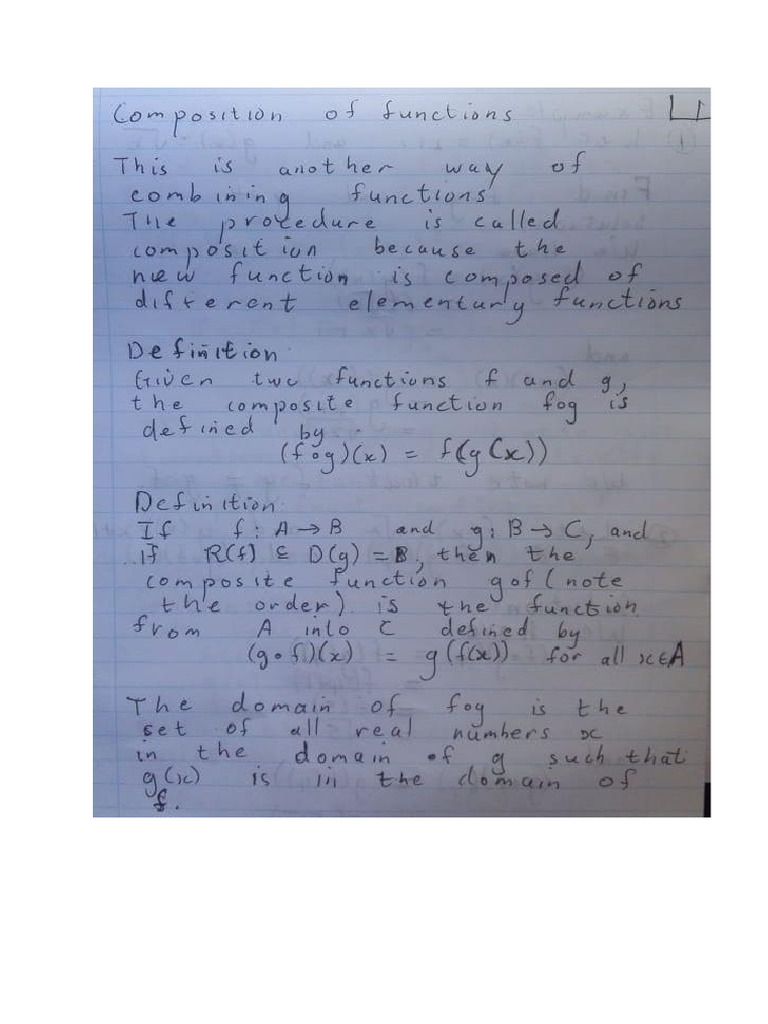 Composition of functions
This is another way of
combining functions
The procedure is called
composition because the
new function is composed of
different elementary functions
Definition.
Given two functions f and g,
the composite function fog is
defined by
(f∘g)(x) = f(g(x))
Definition.
If f: A → B and g: B → C, and
if R(f) ⊆ D(g) = B, then the
composite function gof (note
the order) is the function
from A into C defined by
(g∘f)(x) = g(f(x)) for all x∈A
The domain of fog is the
set of all real numbers x
in the domain of g such that
g(x) is in the domain of
f.